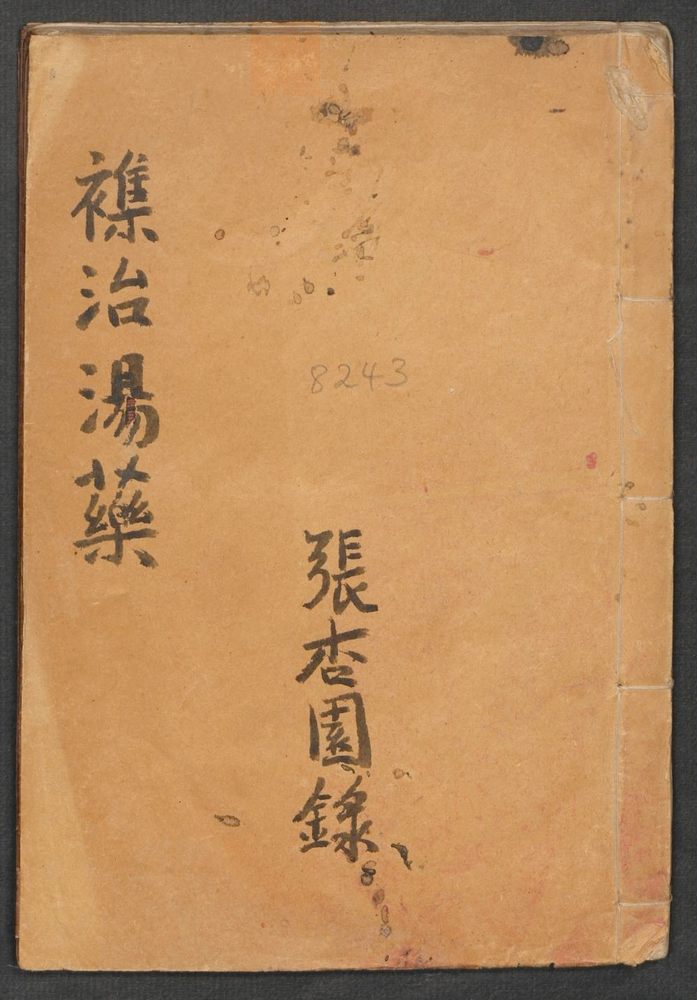 襍治湯藥
8243
張杏園錄